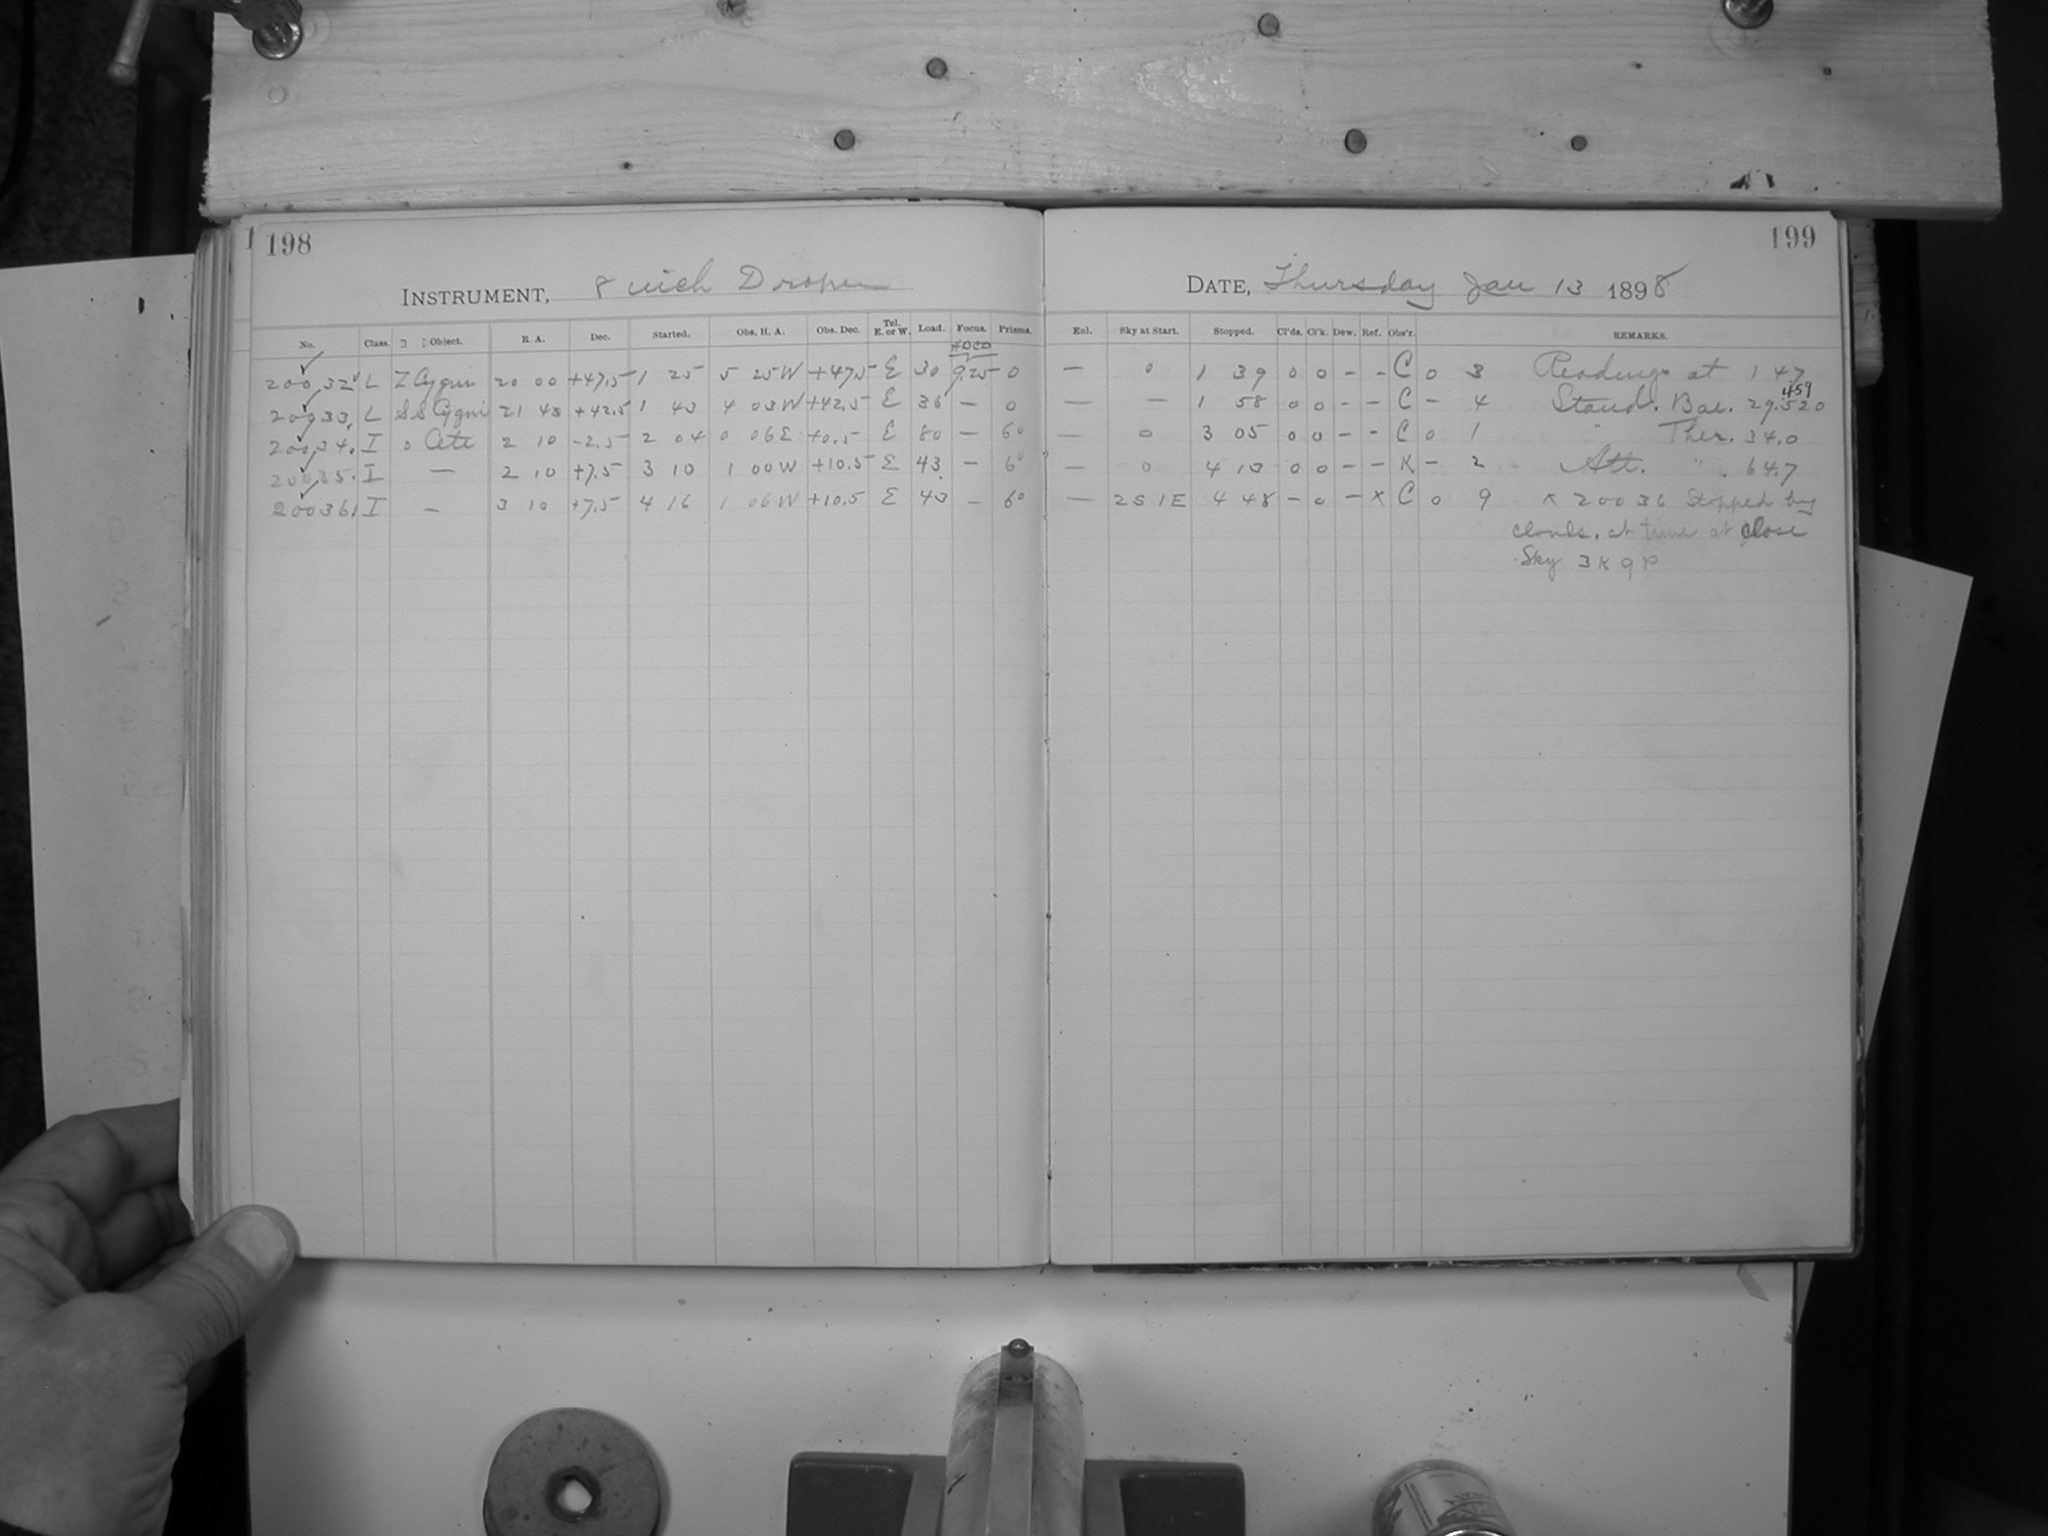 198
INSTRUMENT, 8 inch Draper
No. Class. Object. R. A. Dec. Started. Obs. H. A. Obs. Dec. Tel. E. or W. Load. Focus. Prisms.
20032 L Z Cygni 20 00 +47.5 1 25 5 25 W +47.5 E 30 9.25 0
20033 L SS Cygni 21 43 +42.5 1 43 4 03 W +42.5 E 36 — 0
20034. I o Ceti 2 10 -2.5 2 04 0 06 E +0.5 E 80 — 60
20035. I — 2 10 +7.5 3 10 1 00 W +10.5 E 43 — 6
20036. I — 3 10 +7.5 4 16 1 06 W +10.5 E 43 — 60
199
DATE, Thursday Jan 13 1898
Enl. Sky at Start. Stopped. Cl'ds. Cl'k. Dew. Ref. Obs'r. REMARKS.
— 0 1 39 0 0 - - C 0 3 Readings at 1 47
— — 1 58 0 0 - - C - 4 Stand. Bar. 29.520 459
— 0 3 05 0 0 - - C 0 1 " Ther. 34.0
— 0 4 13 0 0 - - K - 2 Att. " . 64.7
— 2S 1E 4 48 - 0 - x C 0 9 x 20036 Stopped by
clouds. at time at close
Sky 3K 9P